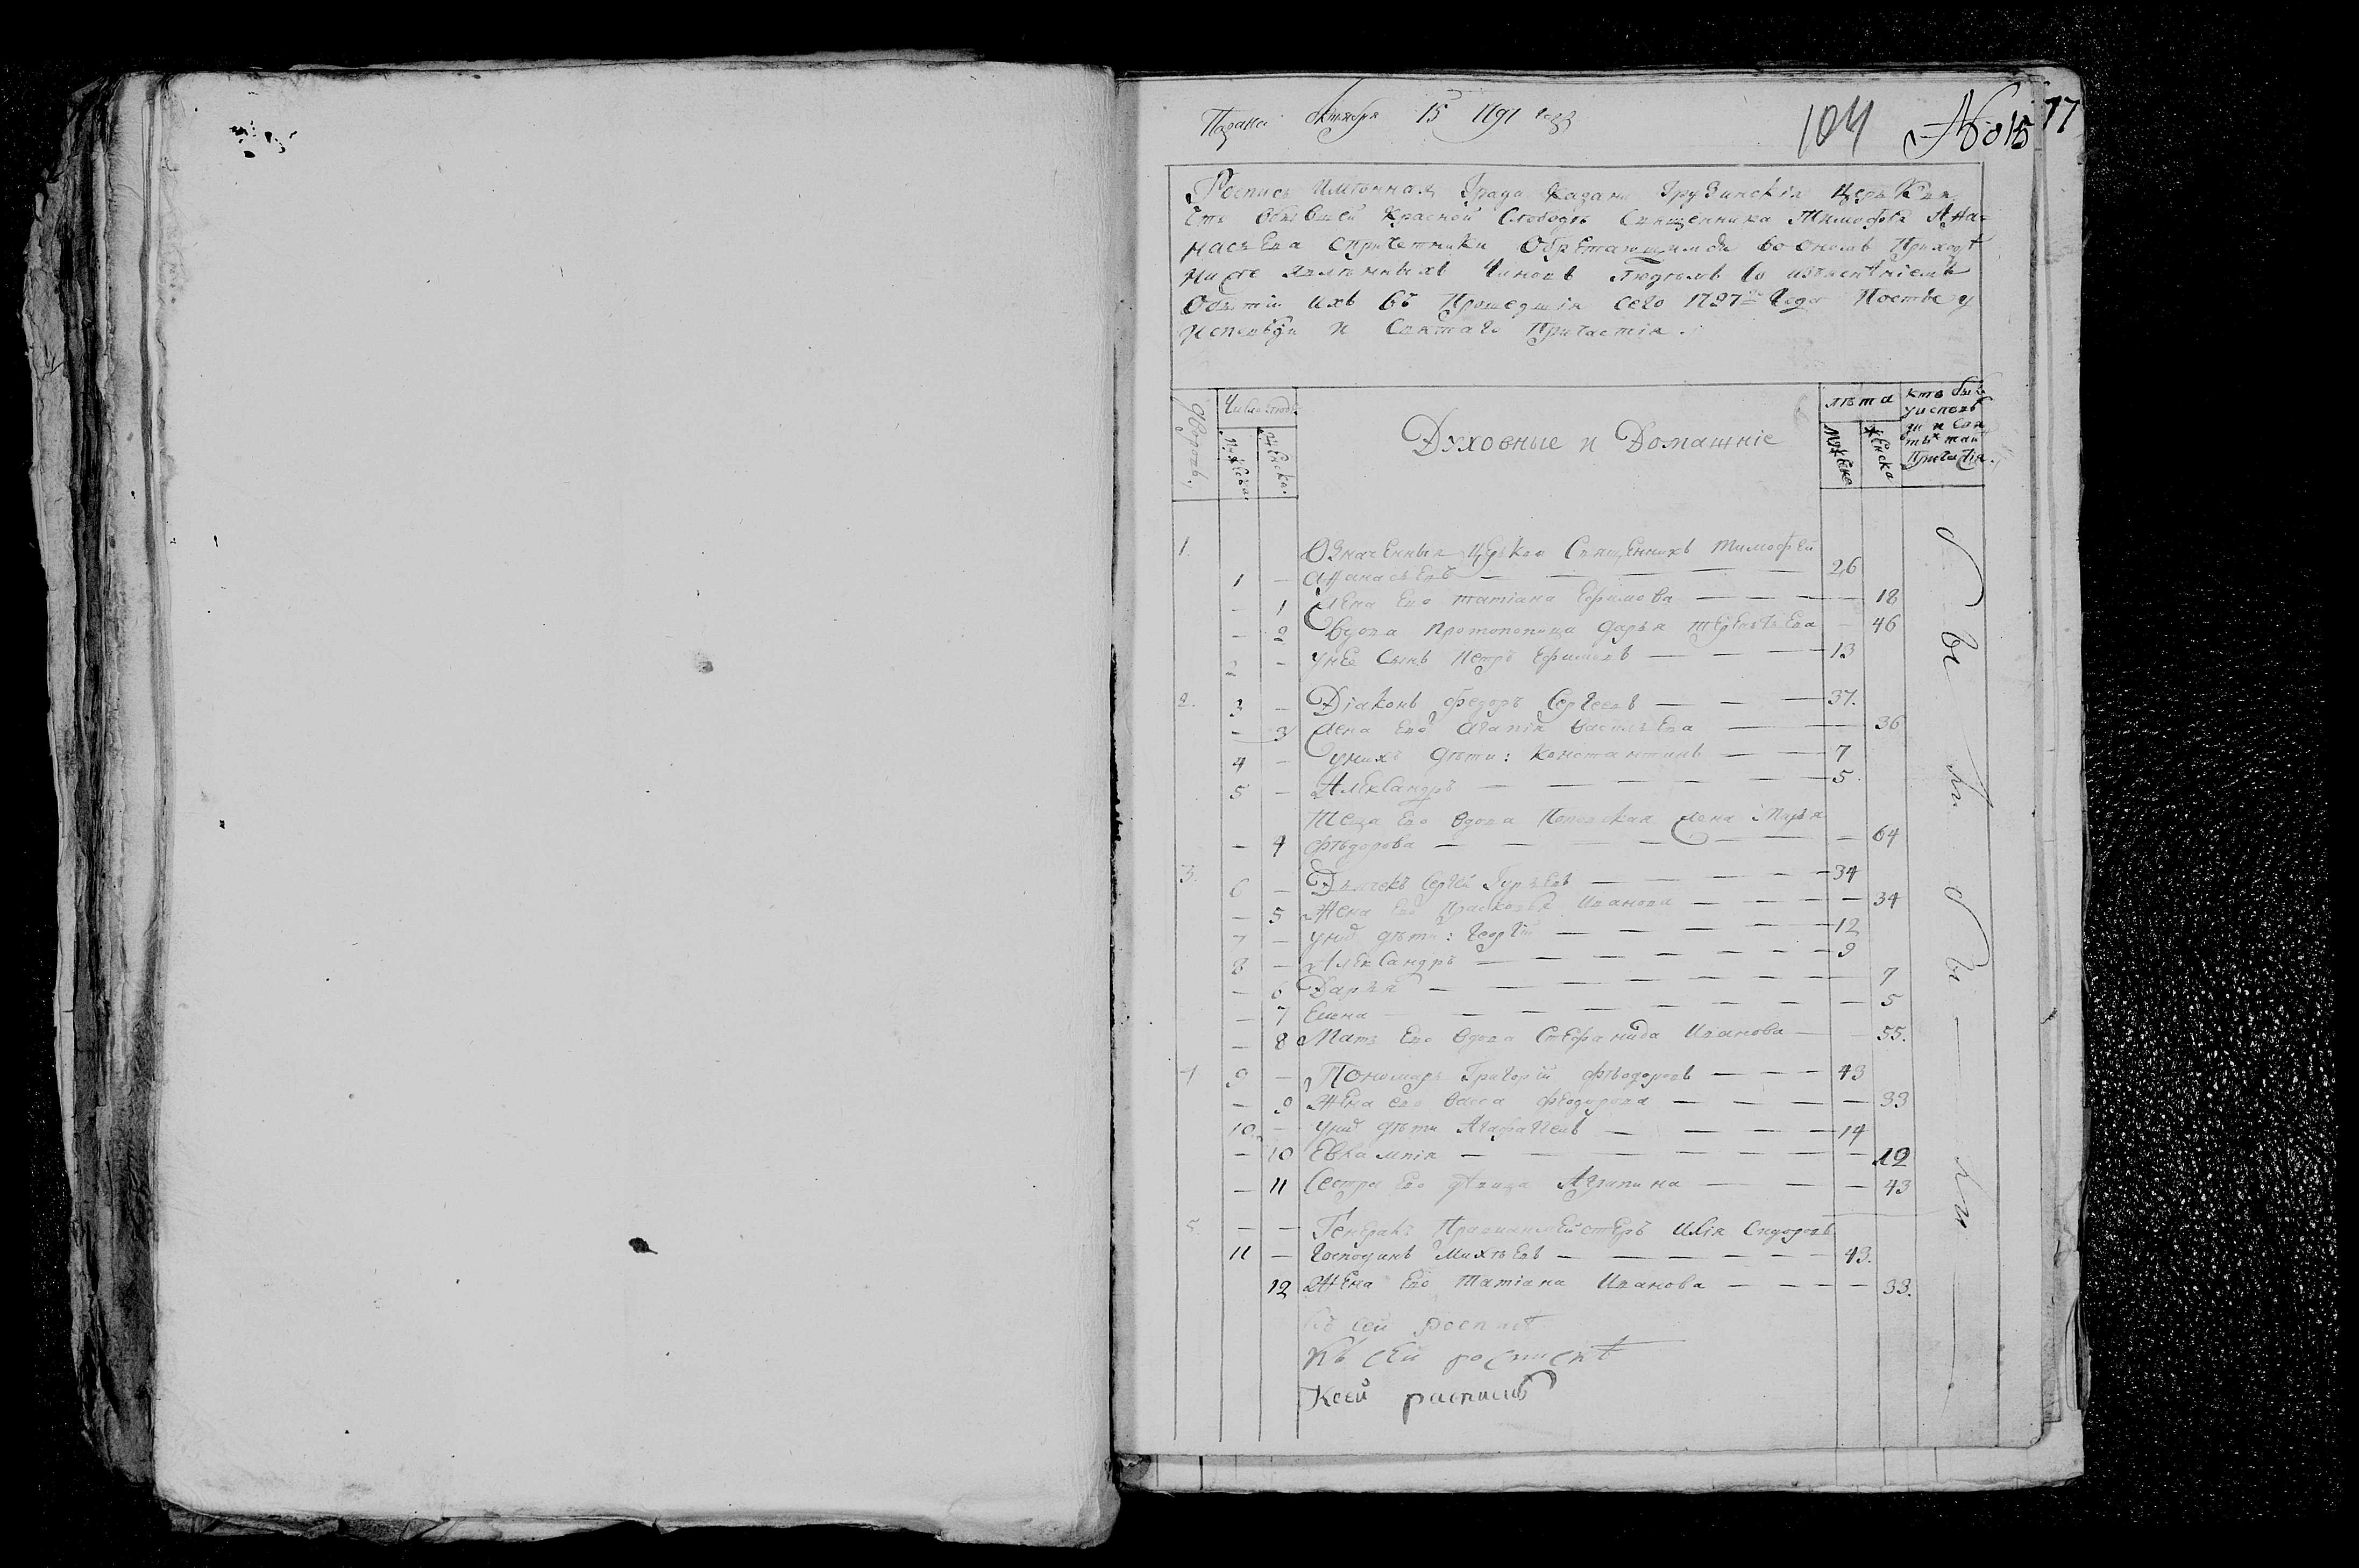 Подана октября 15 1797 года
104
№ 15
77
Роспись имѣнная Града Казани Грузинскія Церькви
что въ бывшей Красной Слободѣ Священника Тимофѣя Афа=
насьева спричетники обрѣтающимся во ономъ приходѣ
ниже явленныхъ чиновъ людѣмъ со изъявленіемъ
бытїи ихъ въ прошедшія сего 1797го Года Посты у
исповѣди и Святаго Причастія.
дворовъ.
Число людей
мужеска.
женска.
Духовные и Домашніе
лѣта
мужеска
женска
кто былъ
у исповѣ
ди и Свя
тыхъ таи
Причастія.
1. Означенныя Церкви Священникъ Тимофѣй
1 — Афанасьевъ — 26
— 1 Жена Его Татіана Ефимова — 18
— 2 вдова протопопица Дарья Терентьева — 46
2 — у нее Сынъ Петръ Ефимовъ — 13
2. 3 — Діаконъ Федоръ Сергеевъ — 37.
— 3 Жена Его Агапія Васильева — 36
4 — у нихъ дѣти: Константинъ — 7
5 — Александръ — 5.
Теща Его вдова Поповская жена Марья
— 4 Фѣдорова — 64
3. 6 — Дьячекъ Сергій Гурьевъ — 34
— 5 Жена Его Прасковья Иванова — 34
7 — у них дѣти: Георгій — 12
8 — Александръ — 9
— 6 Дарья — 7
— 7 Елена — 5
— 8 Мать Его вдова Стефанида Иванова — 55.
4 9 — Пономарь Григорій Фѣодоровъ — 43
— 9 Жена его Васса Феодорова — 33
10 — у них дѣти Агафангелъ — 14
— 10 Евлампія — 12
— 11 Сестра Его дѣвица Агрипина — 43
5 — — Генералъ Провиянмейстеръ Илія Сидоровъ
11 — Господинъ Михѣевъ — 43.
12 Жена Его Татіана Иванова — 33.
Были были
Къ сей росписѣ
Къ сей росписѣ
Ксей расписѣ